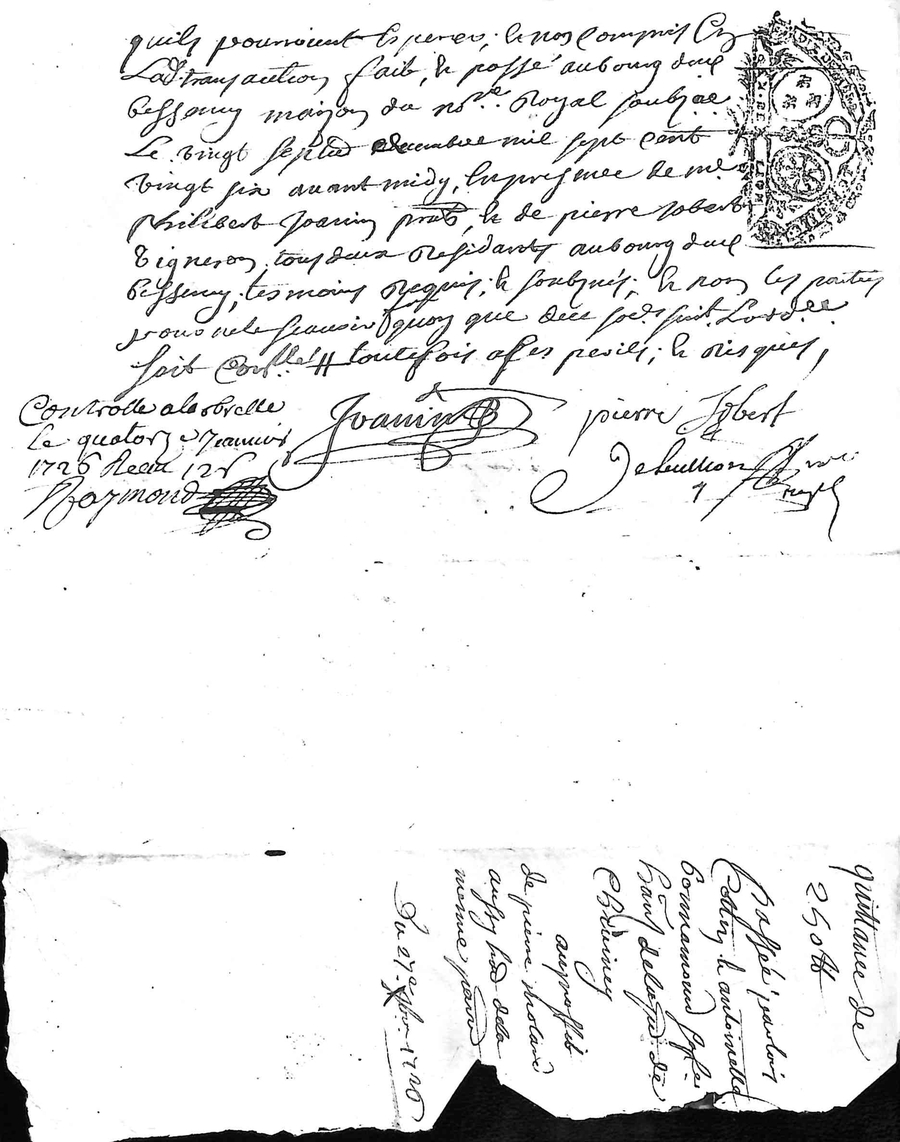 quils pourroient Esperer, & non Compris En
Lad. transaction, fait, & passé au bourg dud.
bessenay maison du no.re Royal soubz.né
Le vingt sept.e decembre mil sept cent
vingt six avant midy, En presence de m.e
philibert Joanin prat.n, & de pierre Jobert
vigneron, tous deux Residants au bourg dud.
bessenay, tesmoins Requis, & soubznés, & non les parties
pour ne le scavoir quoy que de ce
soit Con.llée # toutefois a ses perils, & Risques,
Controllé a larbrelle
Le quatorze Jeanvier
1726 Receu 12 s
Raymond
Joanin
pierre Jobert
quittance de
250 tt
passée par
& antoinette
bonnamour
de la par. de
Chevinay
au proffit
de pierre molard
aussy de la
mesme parr.
Du 27.e xbre 1726